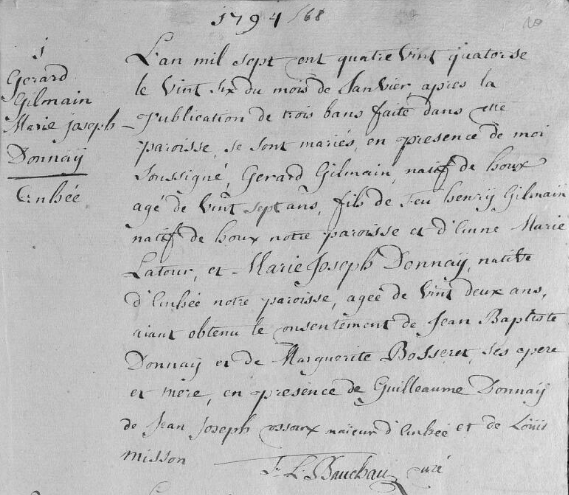 1794 / 68
20
1
Gerard
Gilmain
Marie joseph
Donnaÿ
Enhée
L'an mil sept cent quatre vint quatorse
le vint six du mois de Janvier, apres la
publication de trois bans faite dans cette
paroisse, se sont mariés, en presence de moi
soussigné, Gerard Gilmain, natif de houx
agé de vint sept ans, fils de feu henrÿ Gilmain
natif de houx notre paroisse et d'Anne Marie
Latour, et Marie Joseph Donnaÿ, native
d'Enhée notre paroisse, agée de vint deux ans,
aiant obtenu le consentement de Jean Baptiste
Donnaÿ et de Marguerite Bosseret, ses pere
et mere, en presence de Guilleaume Donnaÿ
de Jean Joseph maieur d'Enhée et de Louis
Misson
curé